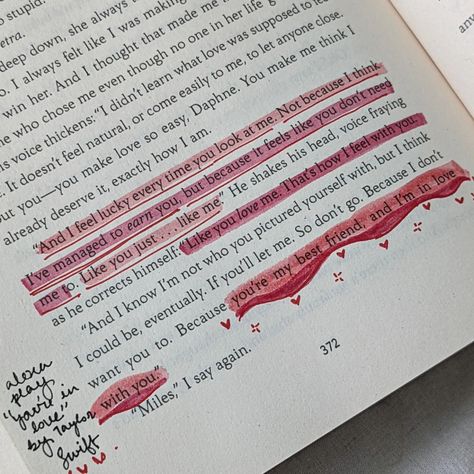 o stupid.
etra.
deep down, she always t
o. I always felt like I was making
win her. And I thought that made me
e who chose me even though no one in her life g
is voice thickens: "I didn't learn what love was supposed to fee
It doesn't feel natural, or come easily to me, to let anyone close.
ut you—you make love so easy, Daphne. You make me think I
already deserve it, exactly how I am.
"And I feel lucky every time you look at me. Not because I think
I've managed to earn you, but because it feels like you don't need
me to. Like you just . . . like me." He shakes his head, voice fraying
as he corrects himself: "Like you love me. That's how I feel with you.
"And I know I'm not who you pictured yourself with, but I think
I could be, eventually. If you'll let me. So don't go. Because I don't
want you to. Because you're my best friend, and I'm in love
with you."
"Miles," I say again.
372
alexa
play
"you're in
love"
by Taylor
Swift